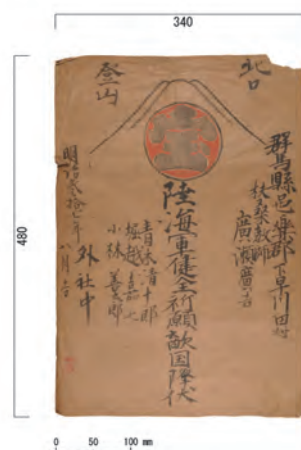 340
480
北口
登山
群馬縣邑楽郡下早川田村
扶桒教師
廣瀬廣吉
陸海軍健全祈願敵国降伏
青木清十郎
堀越 七
小林
外社中
明治参拾七年
八月吉
0 50 100 mm